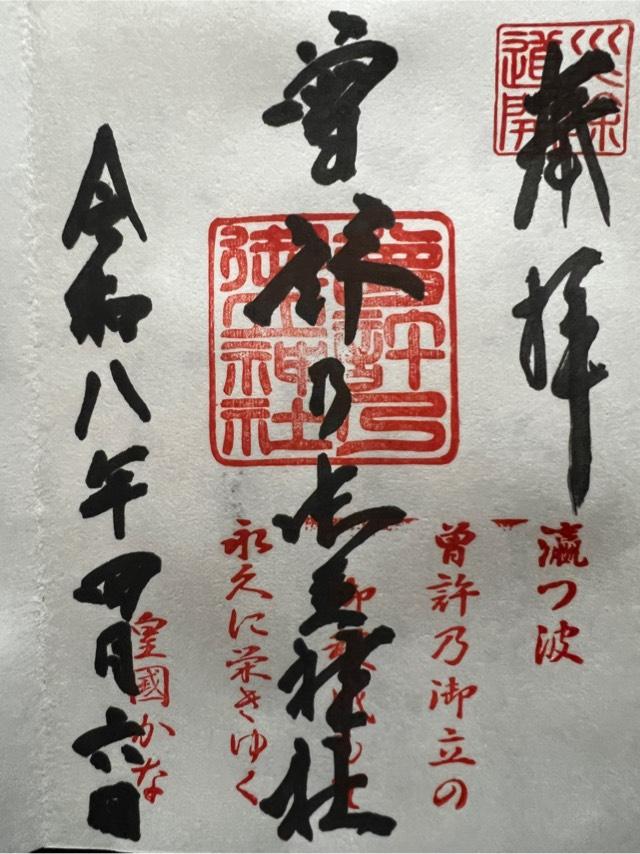 災除
道開
奉拝
瀛つ波
曾許乃御立の
曾許乃御立神社
曾許乃
御立神社
永久に栄きゆく
皇國かな
令和八年四月六日